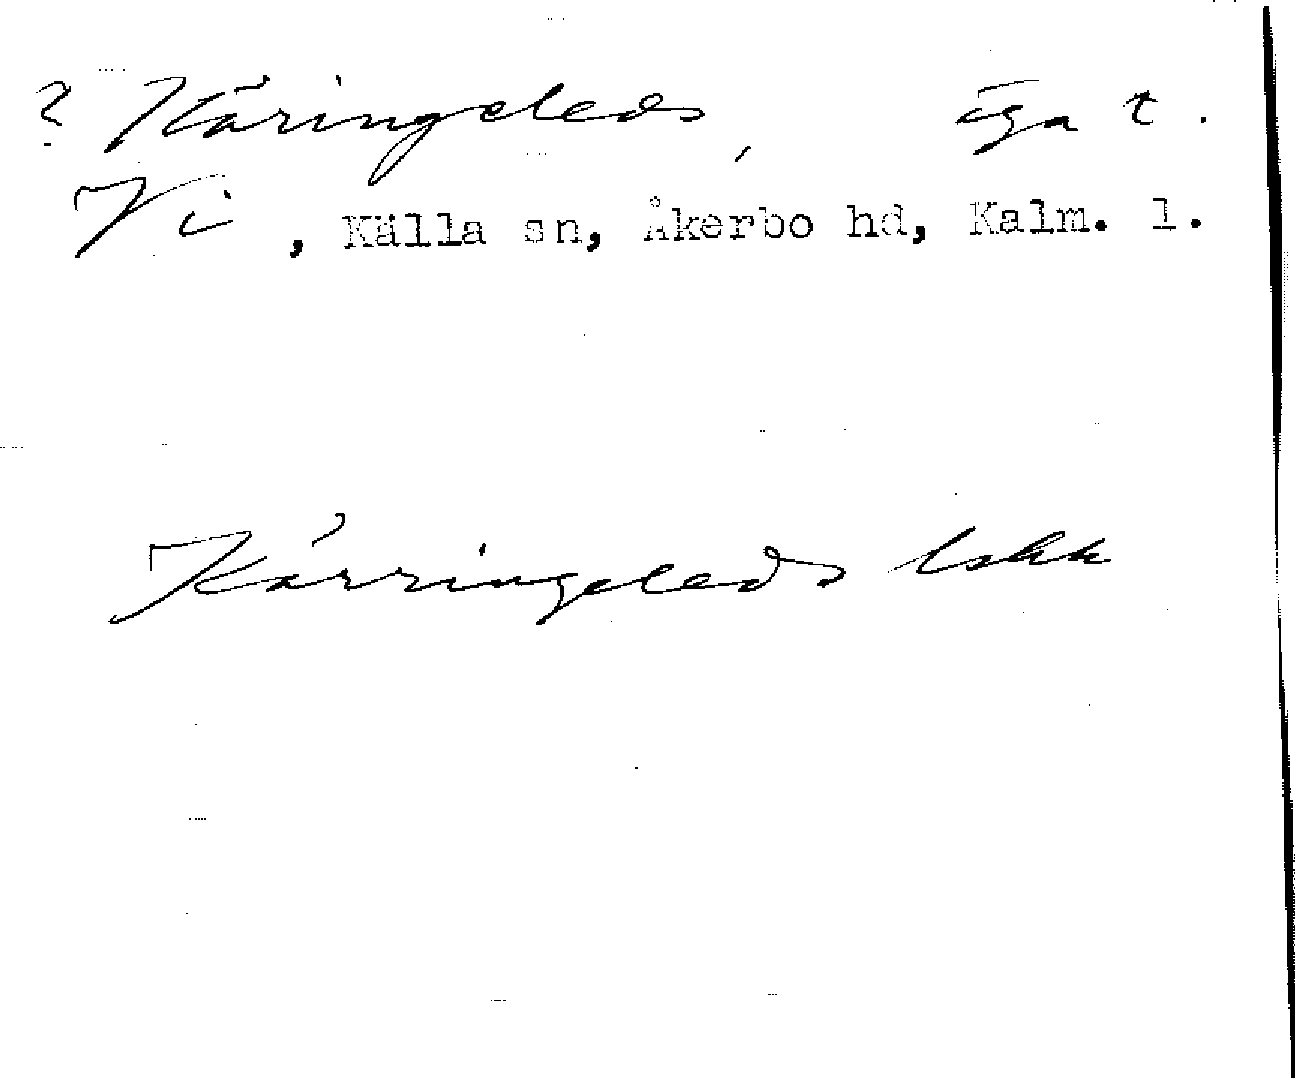 ? Käringeleds, äga t.
Vi, Källa sn, Åkerbo hd, Kalm. l.
Kärringeleds lskk